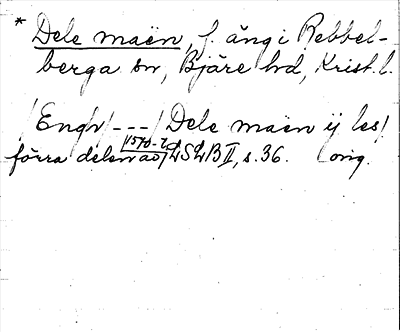 * Dele maën, f. äng i Rebbel-
berga sn, Bjäre hd, Krist. l.
/Engh/ --- / Dele maen ij les/
1570-t.
förra delen av/ LSLB II, s. 36. orig.